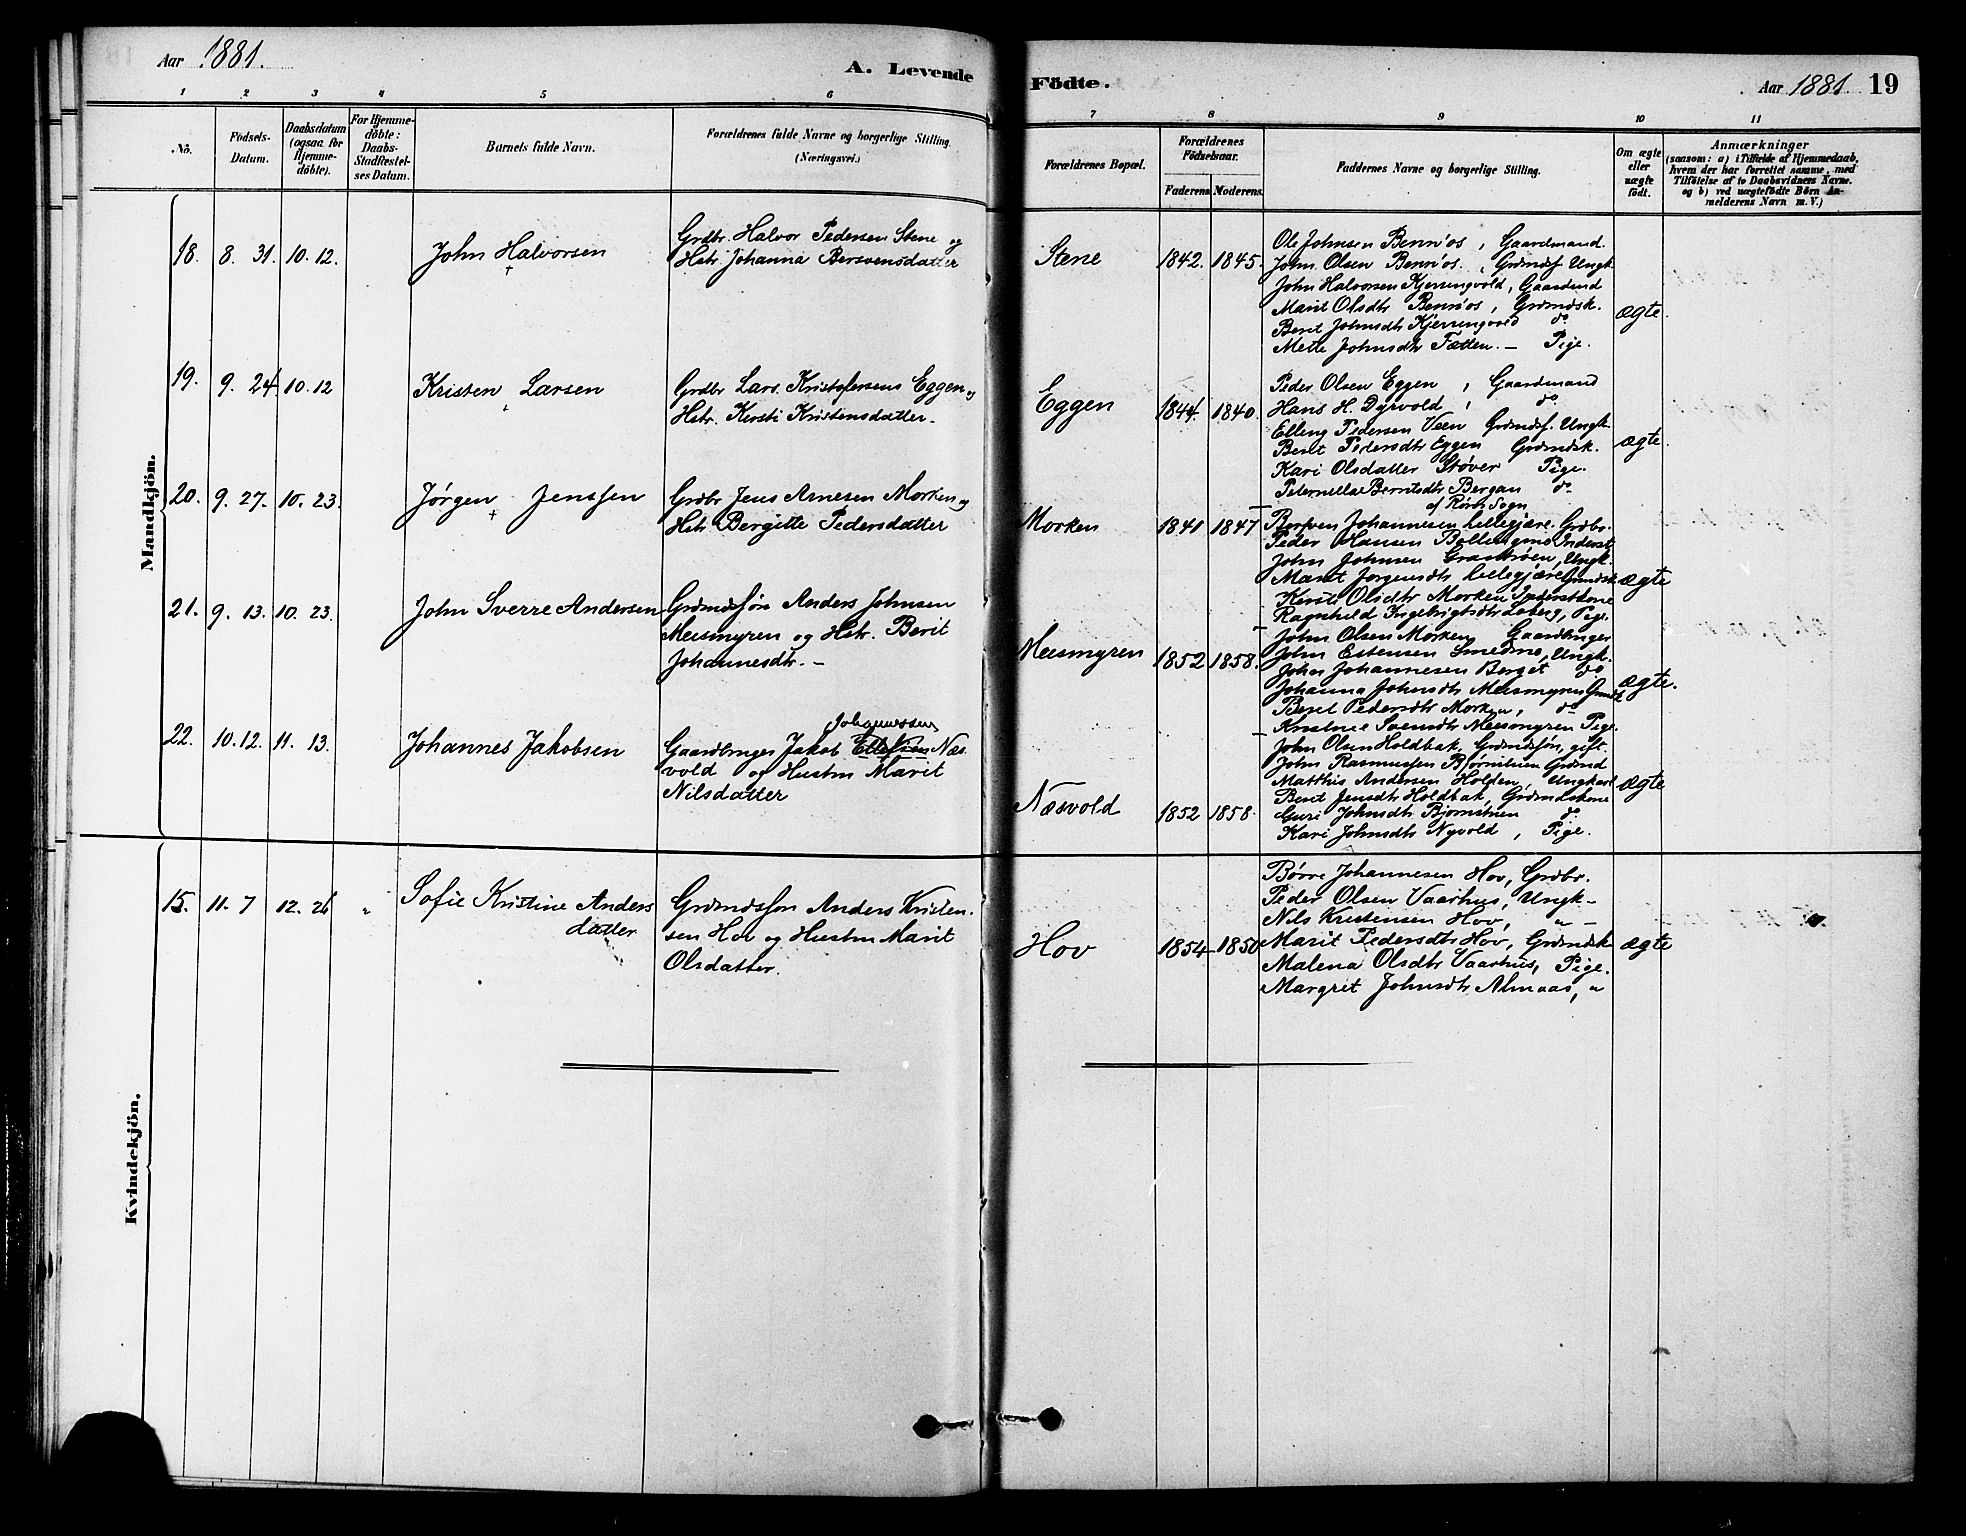 Aar 1881.
A. Levende
Födte.
Aar 1881. 19
1 2 3 4 5 6
7 8 9 10 11
No.
Födsels-
Datum.
Daabsdatum
(ogsaa for
Hjemme-
döbte).
For Hjemme-
döbte:
Daabs-
Stadfæstel-
ses Datum.
Barnets fulde Navn.
Forældrenes fulde Navne og borgerlige Stilling.
(Næringsvei.)
Forældrenes Bopæl.
Forældrenes
Födselsaar.
Faderens Moderens.
Faddernes Navne og borgerlige Stilling.
Om ægte
eller
uægte
födt.
Anmærkninger
(saasom: a) i Tilfælde af Hjemmedaab,
hvem der har forrettet samme, med
Tilföielse af to Daabsvidners Navne,
og b) ved uægtefödte Börn An-
melderens Navn m. V.)
Mandkjön.
18. 8. 31. 10. 12.
John Halvorsen
Grdbr. Halvor Pedersen Stene og
Hstr. Johanna Bersvensdatter
Stene
1842. 1845.
Ole Johnsen Bennos, Gaardmand.
John Olsen Bennos. Grdmdsf. Ungk.
John Halvorsen Kjerringvold, Gaardmd
Marit Olsdtr Bennos, Grdmdsk.
Berit Johnsdtr Kjerringvold do
Mette Johnsdtr Fætten. — Pige.
ægte.
19. 9. 24. 10. 12
Kristen Larsen
Grdbr Lars Kristofersens Eggen og
Hstr. Kersti Kristensdatter.
Eggen
1844. 1840.
Peder Olsen Eggen, Gaardmand
Hans H. Dyrvold, do
Elling Pedersen Veen Grdmdsf. Ungk.
Berit Pedersdtr Eggen Grdmdsk.
Kari Olsdatter Støver Pige.
Peternellae Berntsdtr Bergan do
af Røros Sogn
ægte.
20. 9. 27. 10. 23.
Jørgen Jenssen
Grdbr Jens Arnesen Morken og
Hstr Bergitte Pedersdatter
Morken
1841 1847
Bersven Johannesen Lillegjære. Grdbr.
Peder Hansen Inderst
John Johnsen Ungk.
Marit Jørgensdtr Lillegjære Grdmdsk.
Kersti Olsdtr Morken Inderstkone
Ragnhild Ingebrigtsdtr Loberg, Pige.
ægte
21. 9. 13. 10. 23.
John Sverre Andersen
Grdmdssøn Anders Johnsen
Meesmyren og Hstr. Berit
Johannesdtr. —
Meesmyren
1852 1858.
John Olsen Morken, Gaardbruger
John Estensen Smedmo, Ungk.
John Johannesen Berget do
Johanna Johnsdtr Meesmyren Grmdk
Berit Pedersdtr Morken, do
Kristine Svensdtr Meesmyren Pige.
ægte.
22. 10. 12. 11. 13.
Johannes Jakobsen
Johannessen
Gaardbruger Jakob Ellefsen Næs-
vold og Hustru Marit
Nilsdatter
Næsvold
1852 1858.
John Olsen Holdbak, Grdmdssøn, gift.
John Rasmussen Bjørnstuen Grdmd
Matthis Andersen Holden, Ungkarl
Berit Jensdtr Holdbak, Grdmdskone
Guri Johnsdtr Bjørnstuen do
Kari Johnsdtr Nyvold, Pige.
ægte
Kvindekjön.
15. 11. 7 12. 26 "
Sofie Kristine Anders
datter
Grdmdssøn Anders Kristen-
sen Hov og Hustru Marit
Olsdatter.
Hov
1854 1850
Børre Johannesen Hov, Grdbr.
Peder Olsen Vaarhus, Ungk —
Nils Kristensen Hov, " —
Marit Pedersdtr Hov, Grdmdsk
Malena Olsdtr Vaarhus, Pige.
Margrit Johnsdtr Almaas, "
ægte